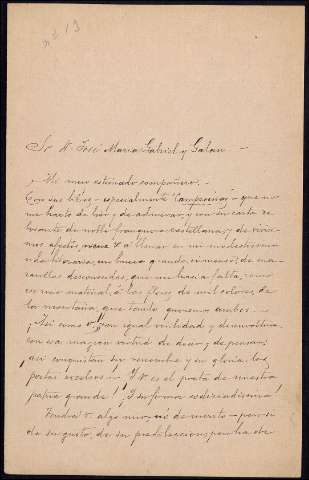 Sr. D. José María Gabriel y Galan
¡Mi muy estimado compañero:
Con sus libros - especialmente "Campesinas" - que no
me harto de leer y de admirar, y con su carta re-
bosante de noble franqueza castellana, y de viví-
simos afectos, viene V. a llenar en mi modestísima
un hueco grande, inmenso, de ma-
ravillas desconocidas, que me hacía falta, como
á las flores de mil colores, de
la montaña, que tanto queremos ambos.
¡Así como V., con igual virilidad y desenvoltura
con esa manera de decir y de pensar,
así conquistan su renombre y su gloria los
poetas excelsos ... Y V. es el poeta de nuestra
patria grande! ¡Y su fama es
Tendrá V. algo mío, no de mérito - pero sí
de su gusto, de su predilección, por ha de